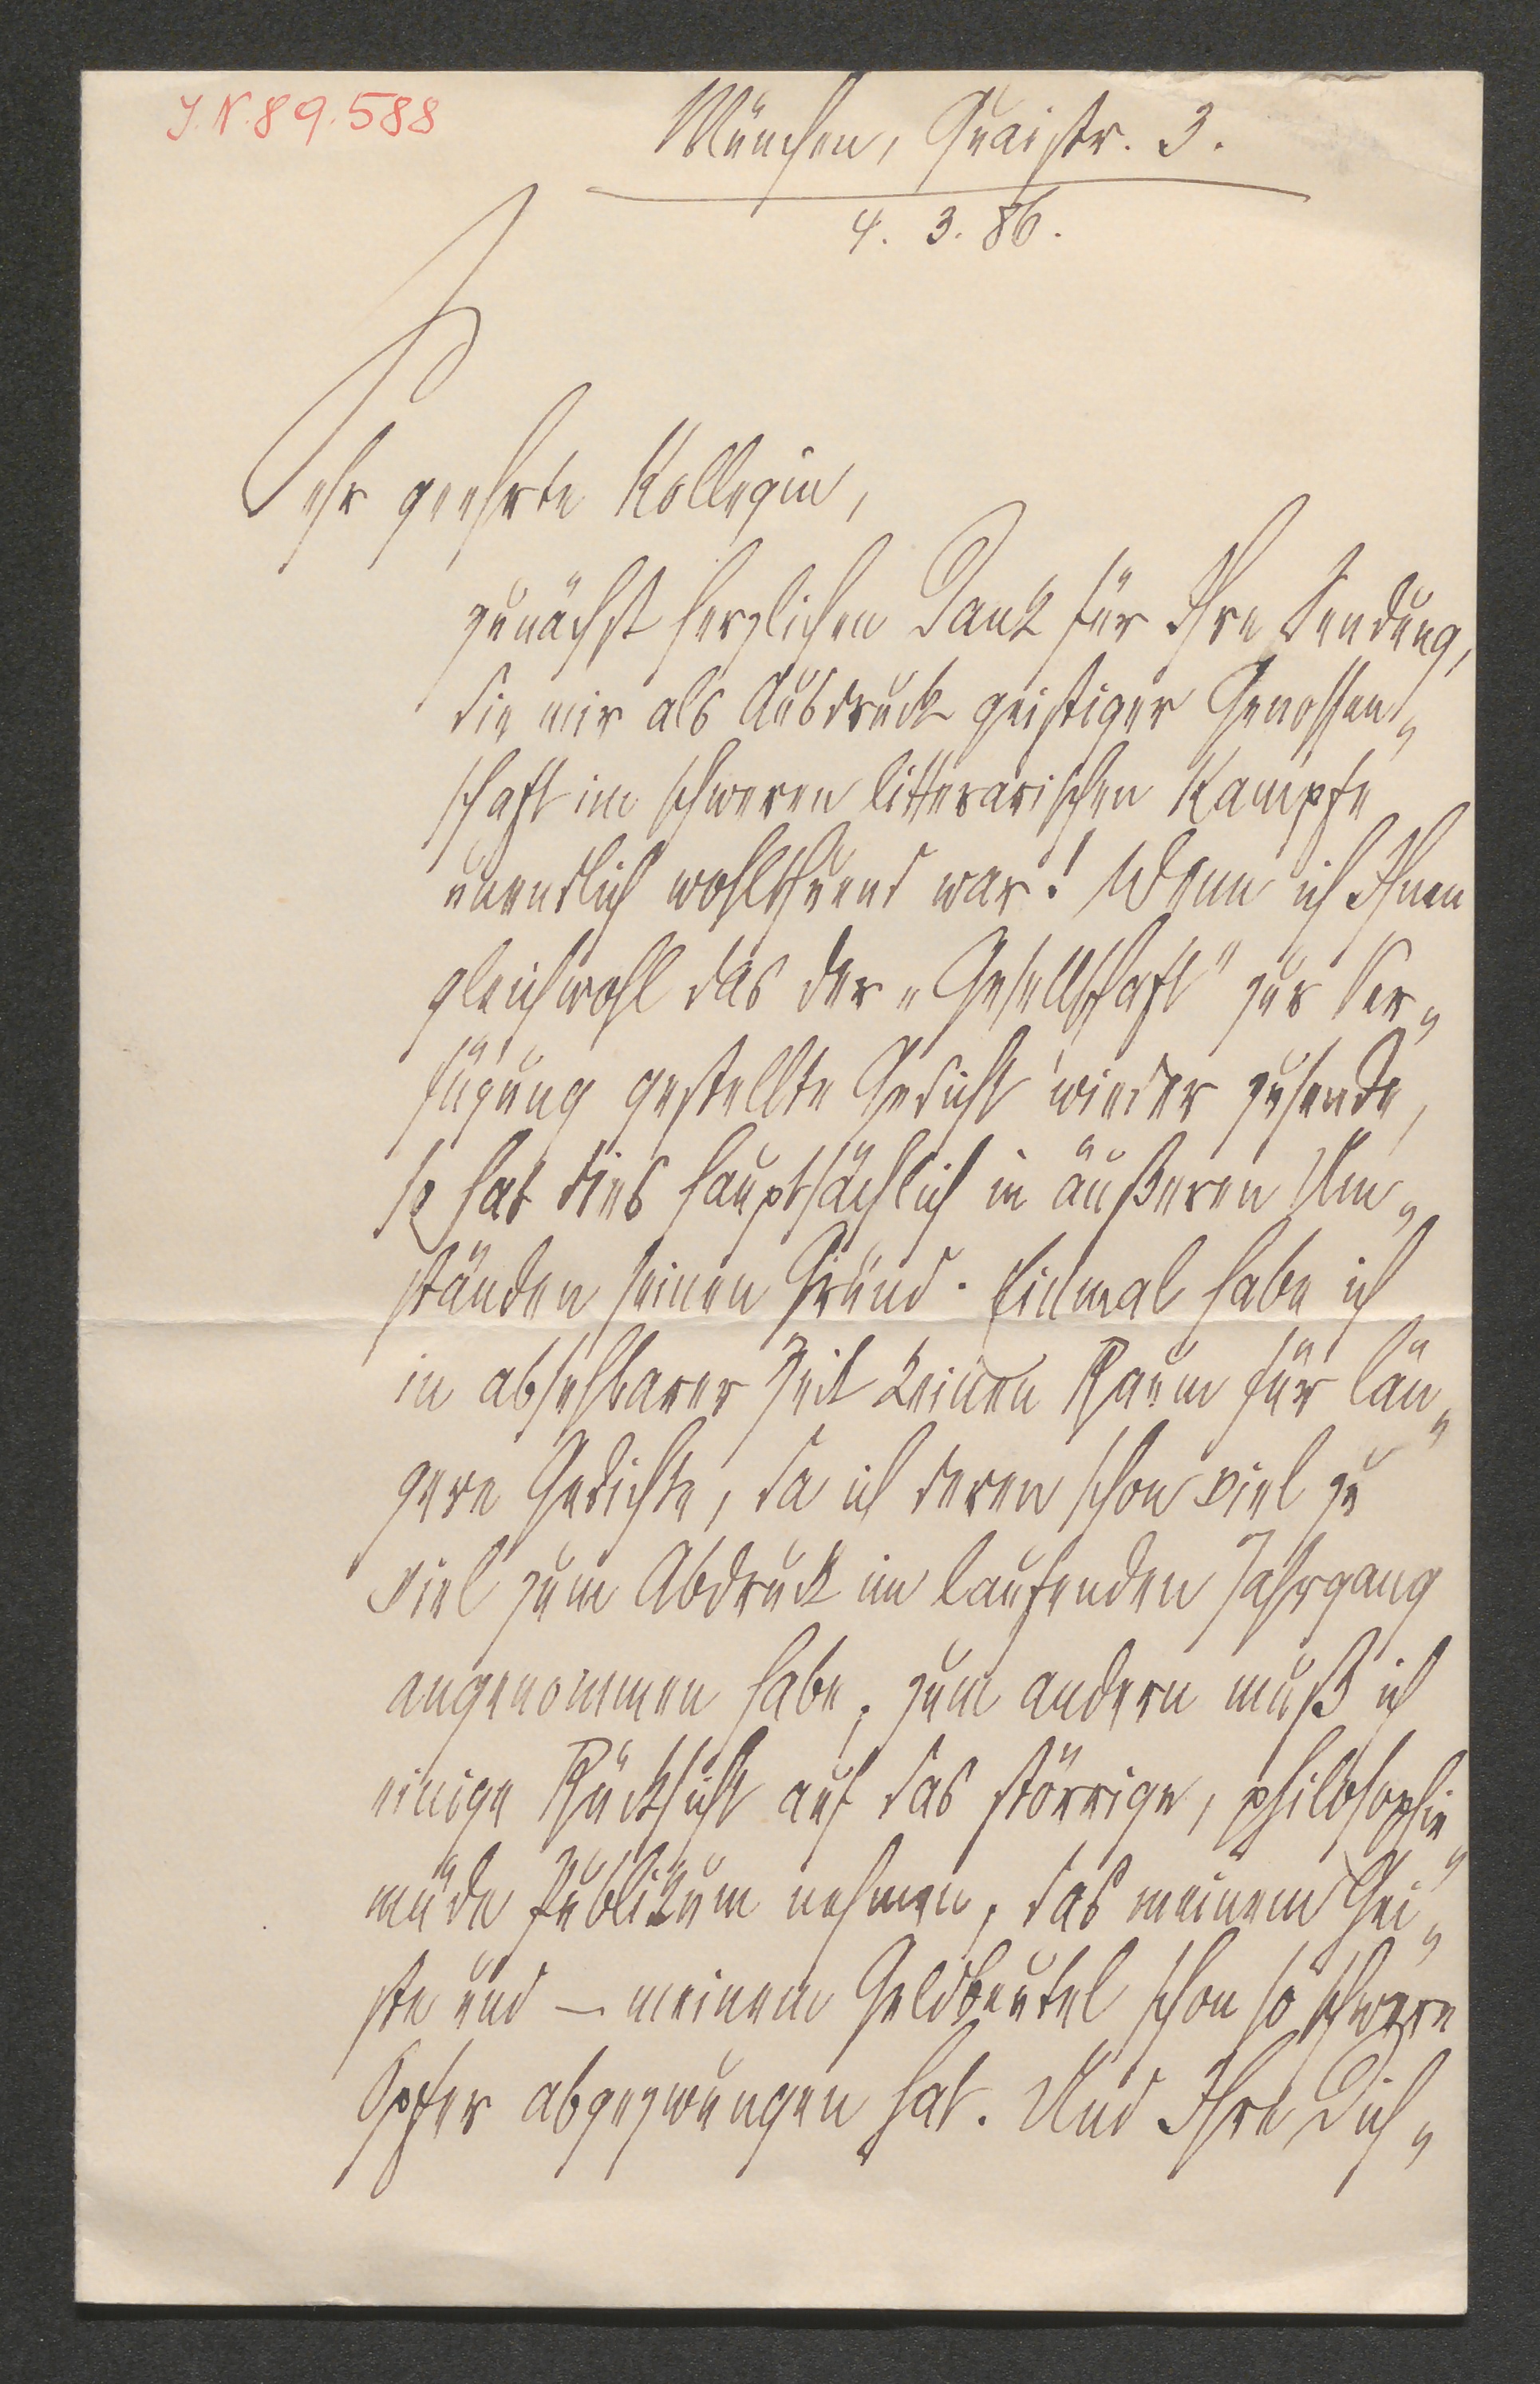 J.N. 89.588
München, Quaistr. 3.
4. 3. 86.
Sehr geehrte Kollegin,
zunächst herzlichen Dank für Ihre Sendung,
die mir als Ausdruck geistiger Genossen„
schaft im schweren litterarischen Kampfe
unendlich wohlthuend war! Wenn ich Ihnen
gleichwohl das der „Gesellschaft" zur Ver„
fügung gestellte Gedicht wieder zusende,
so hat dies hauptsächlich in äußeren Um„
ständen seinen Grund. Einmal habe ich
in absehbarer Zeit keinen Raum für län„
gere Gedichte, da ich deren schon viel zu
viel zum Abdruck im laufenden Jahrgang
angenommen habe, zum andern muß ich
einige Rücksicht auf das störrige, philosophie„
müde Publikum nehmen, das meinem Gei„
ste und – meinem Geldbeutel schon so schwere
Opfer abgezwungen hat. Und Ihre Dich„